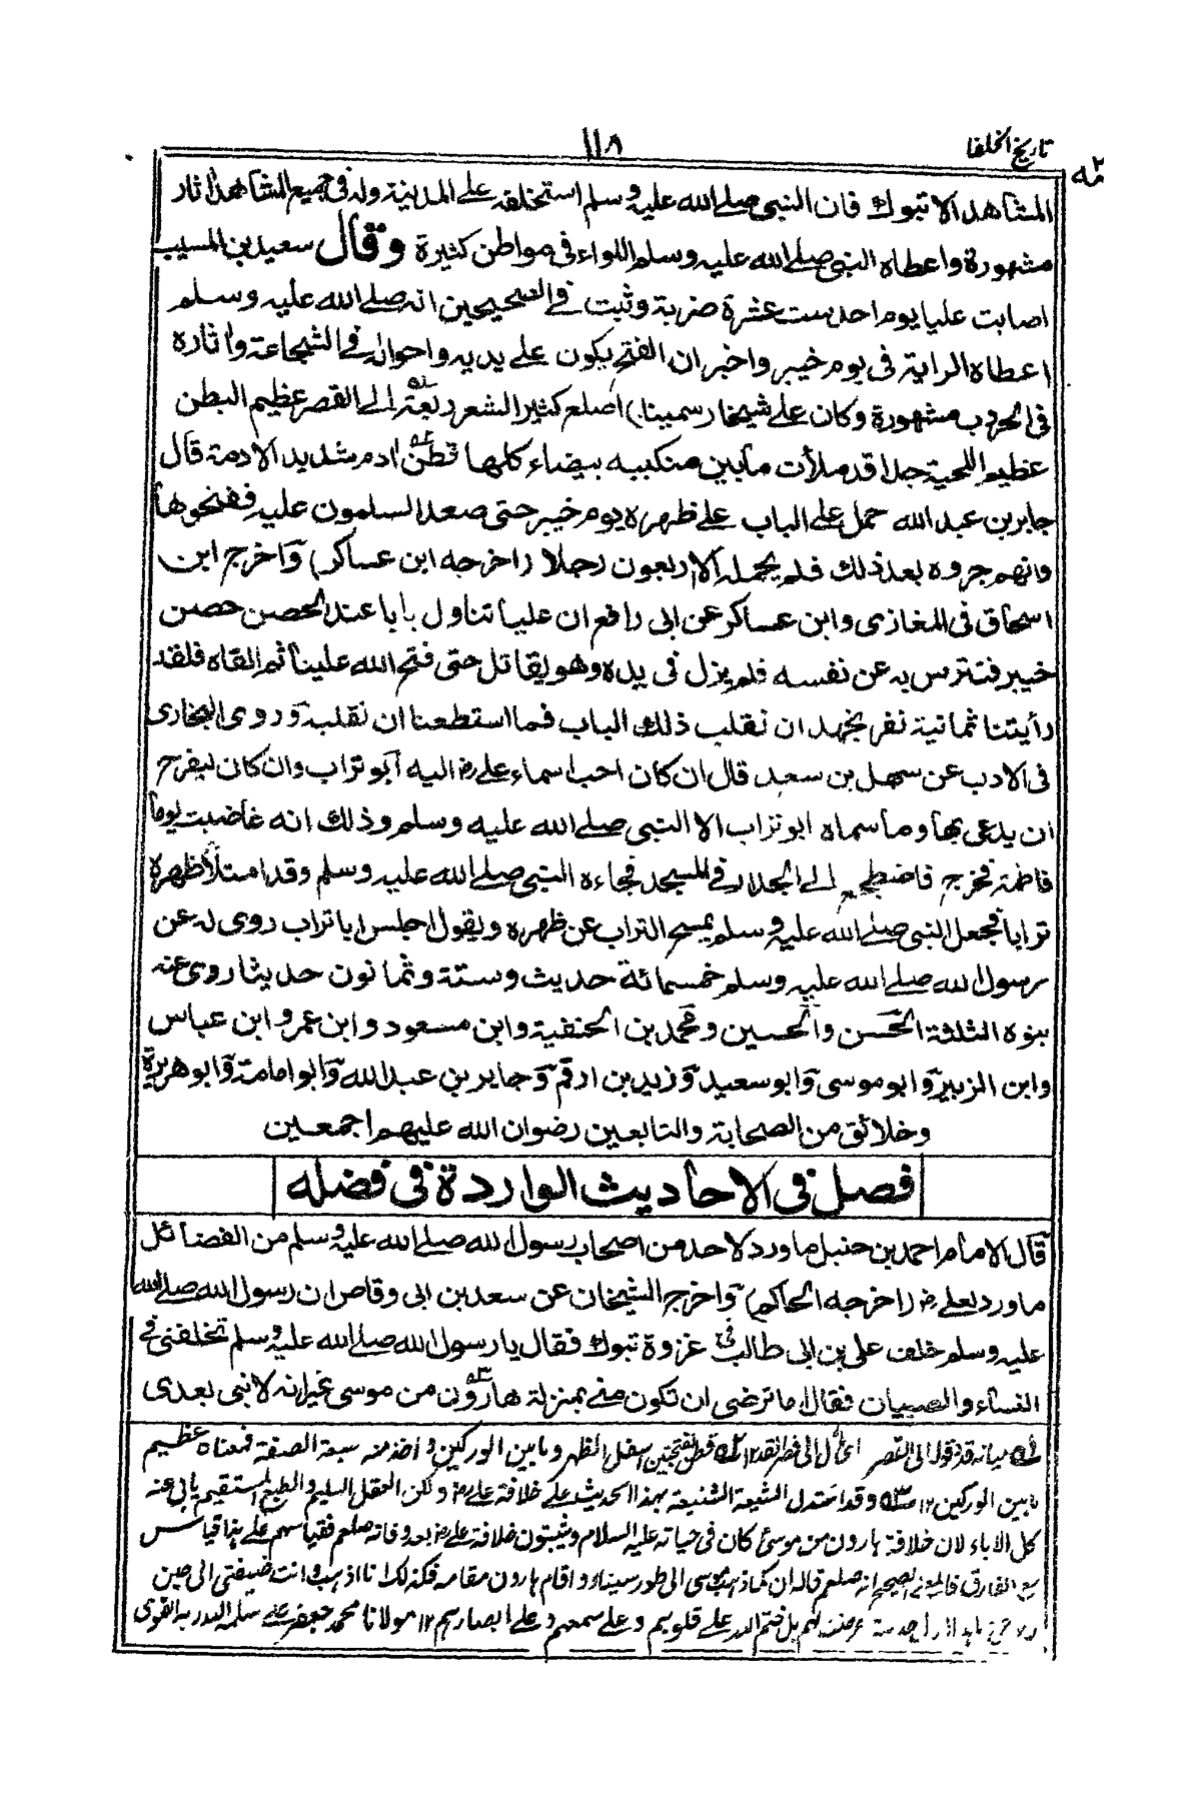 تاریخ الخلفا
١١٨
المشاهد الا تبوك فان النبی صلے الله علیہ وسلم استخلفه علے المدینة وله فی جمیع المشاهد اثار
مشهورة واعطاه النبی صلے الله علیہ وسلم اللواء فی مواطن کثیرة وقال سعید بن المسیب
اصابت علیا یوم احد ست عشرة ضربة وثبت فے الصحیحین انہ صلے الله علیہ وسلم
اعطاه الرایة فی یوم خیبر واخبر ان الفتح یکون علے یدیه واحوالہ فے الشجاعة واثاره
فی الحروب مشهورة وکان علے شیخا سمینا اصلع کثیر الشعر ربعة الے القصر عظیم البطن
عظیم اللحیة جدا قد ملأت مابین منکبیه بیضاء کانها قطن ادم شدید الادمة قال
جابر بن عبد الله حمل علے الباب علے ظهره یوم خیبر حتی صعد المسلمون علیہ ففتحوها
وانهم جروه بعد ذلك فلم یحمله الا اربعون رجلا (اخرجه ابن عساکر) واخرج ابن
اسحاق فی المغازی وابن عساکر عن ابی رافع ان علیا تناول بابا عند الحصن حصن
خیبر فتترس به عن نفسه فلم یزل فی یده وهو یقاتل حتی فتح الله علینا ثم القاه فلقد
رأیتنا ثمانیة نفر نجهد ان نقلب ذلك الباب فما استطعنا ان نقلبه وروی البخاری
فی الادب عن سهل بن سعد قال ان کان احب اسماء علے رض الیه ابو تراب وان کان لیفرح
ان یدعی بها وما سماه ابو تراب الا النبی صلے الله علیه وسلم وذلك انه غاضب یوما
فاطمة فخرج فاضطجع الے الجدار فے المسجد فجاءه النبی صلے الله علیہ وسلم وقد امتلأ ظهره
ترابا فجعل النبی صلے الله علیہ وسلم یمسح التراب عن ظهره ویقول اجلس ابا تراب روی له عن
رسول الله صلے الله علیہ وسلم خمسمائة حدیث وستة وثمانون حدیثا روی عنه
بنوه الثلثة الحسن والحسین ومحمد بن الحنفیة وابن مسعود وابن عمر وابن عباس
وابن الزبیر وابو موسی وابو سعید وزید بن ارقم وجابر بن عبد الله وابو امامة وابو هریرة
وخلائق من الصحابة والتابعین رضوان الله علیهم اجمعین
فصل فی الاحادیث الواردة فی فضله
قال الامام احمد بن حنبل ما ورد لاحد من اصحاب رسول الله صلے الله علیہ وسلم من الفضائل
ما ورد لعلے رض (اخرجه الحاکم) واخرج الشیخان عن سعد بن ابی وقاص ان رسول الله صلے الله
علیہ وسلم خلف علی بن ابی طالب فی غزوة تبوك فقال یا رسول الله صلے الله علیہ وسلم تخلفنی فے
النساء والصبیان فقال اما ترضی ان تکون منی بمنزلة هارون من موسی غیر انه لا نبی بعدی
میانہ قد قولہ الی القصر ای مائل الی قصر القد ١٢ قطن بفتحتین اسفل الظهر وما بین الورکین واخذ منه سبعة الصفة فمعناه عظیم
ما بین الورکین ١٢ وقد استدل الشیعة الشنیعة بهذا الحدیث علے خلافة علے رض ولکن العقل السلیم والطبع المستقیم یابی عنہ
کل الاباء لان خلافة ہارون من موسی کان فی حیاتہ علیہ السلام ویثبتون خلافة علے رض بعد وفاتہ صلعم فقیاسہم علے ہذا قیاس
مع الفارق فالمعنی الصحیح انہ صلعم قالہ ان کما ذہب موسی الی طور سیناء واقام ہارون مقامہ فکذلك انا اذہب وانت خلیفتی الی حین
لہم بل ختم اللہ علے قلوبہم وعلے سمعہم وعلے ابصارہم ١٢ مولانا محمد جعفر علے سلمہ